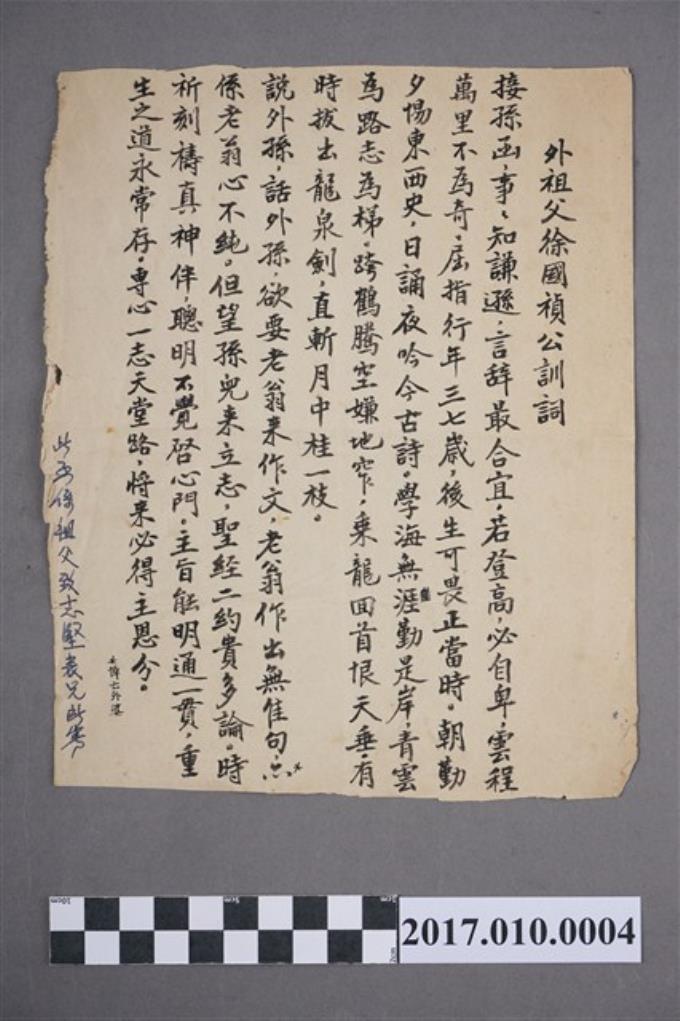 外祖父徐國禎公訓詞
接孫函，事々知謙遜，言辞最合宜，若登高，必自卑，雲程
萬里不為奇。屈指行年三七歲，後生可畏正當時。朝勤
夕惕東西史，日誦夜吟今古詩。學海無涯勤是岸，青雲
為路志為梯。跨鶴騰空嫌地窄，乘龍回首恨天垂，有
時拔出龍泉劍，直斬月中桂一枝。
說外孫，話外孫，欲要老翁来作文，老翁作出無佳句，
係老翁心不純。但望孫兒来立志，聖経二約貴多論。時
祈刻禱真神伴，聰明不覺啓心門。主旨能明通一貫，重
生之道永常存。專心一志天堂路，將来必得主恩分。
此函係祖父致志堅表兄所寫
10cm
5cm
2017.010.0004